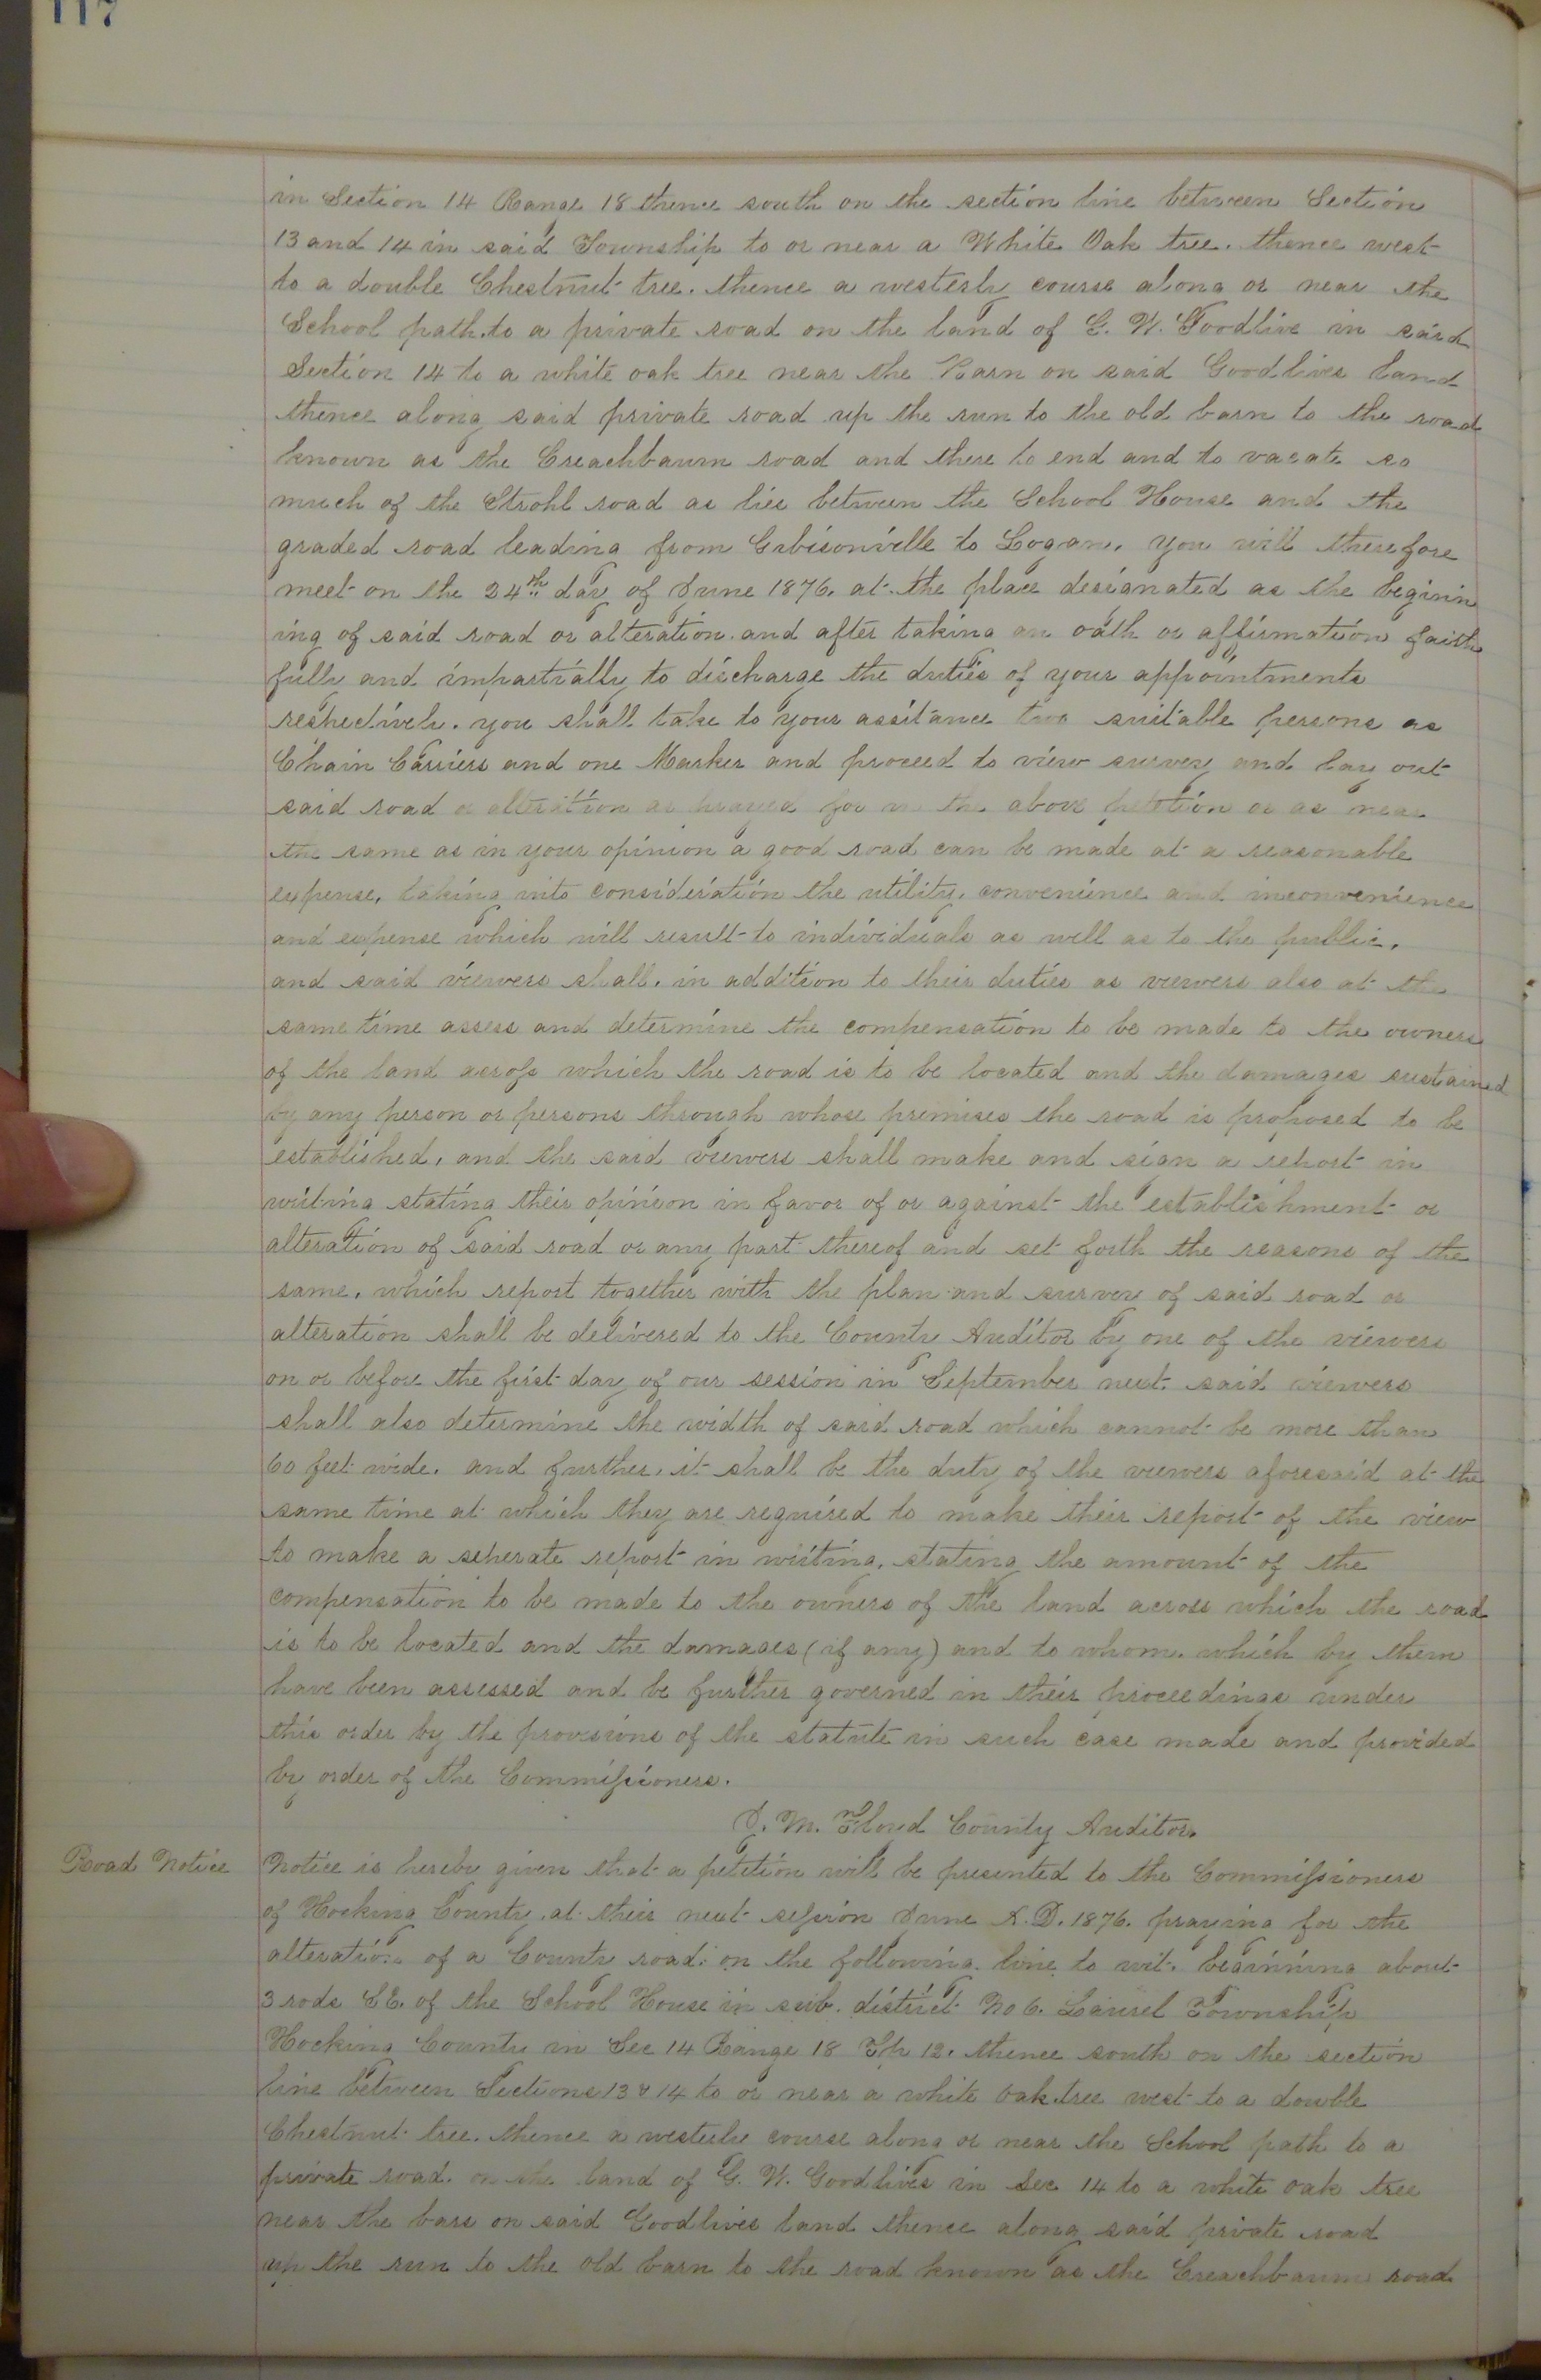 117
in Section 14 Range 18 thence south on the section line between Section
13 and 14 in said Township to or near a White Oak tree. thence west
to a double Chestnut tree. thence a westerly course along or near the
School path to a private road on the land of G. W. Goodlive in said
Section 14 to a white oak tree near the Barn on said Goodlives land
thence along said private road up the run to the old barn to the road
known as the Creachbaum road and there to end and to vacate so
much of the Strohl road as lies between the School House and the
graded road leading from Gibisonville to Logan. you will therefore
meet on the 24th day of June 1876. at the place designated as the beginn
ing of said road or alteration. and after taking an oath or affirmation faith
fully and impartially to discharge the duties of your appointments
respectively. you shall take to your assitance two suitable persons as
Chain Carriers and one Marker and proceed to view survey and lay out
said road or alteration as prayed for in the above petition or as near
the same as in your opinion a good road can be made at a reasonable
expense, taking into consideration the utility, convenience and inconvenience
and expense which will result to individuals as well as to the public,
and said viewers shall, in addition to their duties as viewers also at the
same time assess and determine the compensation to be made to the owners
of the land across which the road is to be located and the damages sustained
by any person or persons through whose premises the road is proposed to be
established, and the said viewers shall make and sign a report in
writing stating their opinion in favor of or against the establishment or
alteration of said road or any part thereof and set forth the reasons of the
same, which report together with the plan and survey of said road or
alteration shall be delivered to the County Auditor by one of the viewers
on or before the first day of our session in September next. said viewers
shall also determine the width of said road which cannot be more than
60 feet wide. and further, it shall be the duty of the viewers aforesaid at the
same time at which they are required to make their report of the view
to make a seperate report in writing, stating the amount of the
compensation to be made to the owners of the land across which the road
is to be located and the damages (if any) and to whom. which by them
have been assessed and be further governed in their proceedings under
this order by the provisions of the statute in such case made and provided
by order of the Commissioners.
D. M. Floyd County Auditor.
Road Notice
Notice is hereby given that a petition will be presented to the Commissioners
of Hocking County, at their next session June A. D. 1876. praying for the
alteration of a County road on the following line to wit. beginning about
3 rods S E. of the School House in sub. district No 6. Laurel Township
Hocking County in Sec 14 Range 18 Tp 12. thence south on the section
line between Sections 13 & 14 to or near a white oak tree west to a double
Chestnut tree. thence a westerly course along or near the School path to a
private road. on the land of G. W. Goodlives in Sec 14 to a white oak tree
near the bars on said Goodlives land thence along said private road
up the run to the old barn to the road known as the Creachbaum road